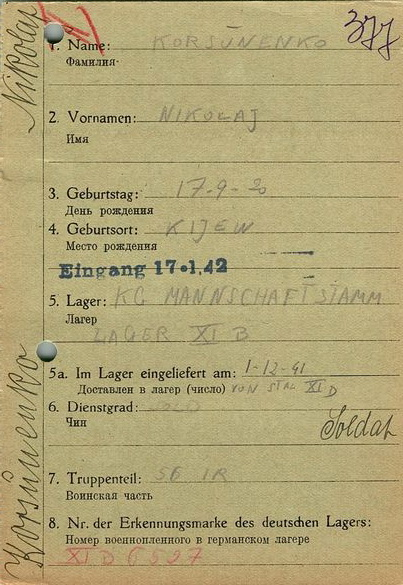 377
1. Name: KORSUNENKO
Фамилия
2. Vornamen: NIKOLAJ
Имя
3. Geburtstag: 17-9-20
День рождения
4. Geburtsort: KIJEW
Место рождения
Eingang 17.1.42
5. Lager: KG MANNSCHAFTSTAMM
Лагер
LAGER XI B
5a. Im Lager eingeliefert am: 1-12-41
Доставлен в лагер (число) VON STAL XI D
6. Dienstgrad:
Чин
Soldat
7. Truppenteil: 56 IR
Воинская часть
8. Nr. der Erkennungsmarke des deutschen Lagers:
Номер военнопленного в германском лагере
XI D 6597
Korsunenko Nikolaj